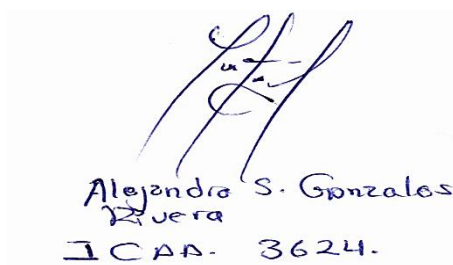 Alejandro S. Gonzalos
Rivera
ICAA. 3624.